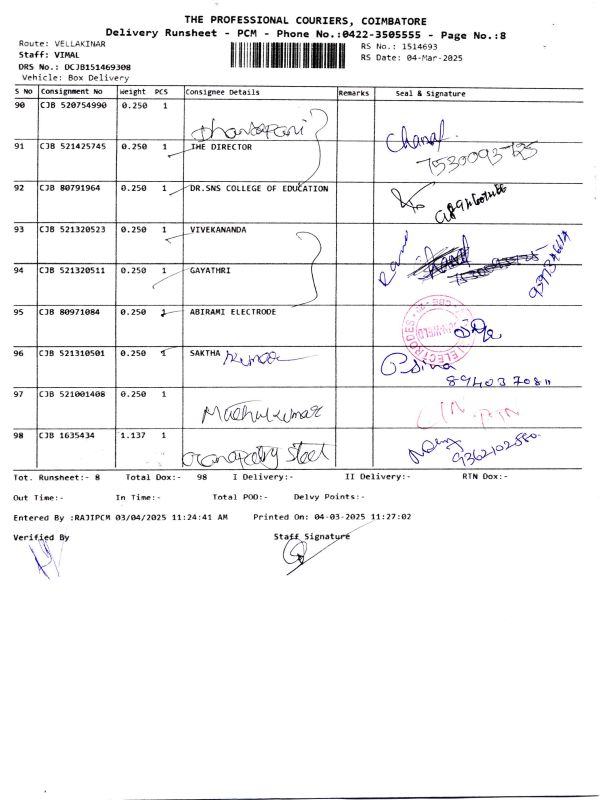 THE PROFESSIONAL COURIERS, COIMBATORE
Delivery Runsheet - PCM - Phone No.:0422-3505555 - Page No.:8
Route: VELLAKINAR
RS No.: 1514693
Staff: VIMAL
RS Date: 04-Mar-2025
DRS No.: DCJB151469308
Vehicle: Box Delivery
S No Consignment No Weight PCS Consignee Details Remarks Seal & Signature
90 CJB 520754990 0.250 1
91 CJB 521425745 0.250 1 THE DIRECTOR
92 CJB 80791964 0.250 1 DR.SNS COLLEGE OF EDUCATION
93 CJB 521320523 0.250 1 VIVEKANANDA
94 CJB 521320511 0.250 1 GAYATHRI
95 CJB 80971084 0.250 1 ABIRAMI ELECTRODE
96 CJB 521310501 0.250 1 SAKTHA Kumar
8940370811
97 CJB 521001408 0.250 1
Muthukumar
98 CJB 1635434 1.137 1
Ganapathy Steel
9362102580
Tot. Runsheet:- 8 Total Dox:- 98 I Delivery:- II Delivery:- RTN Dox:-
Out Time:- In Time:- Total POD:- Delvy Points:-
Entered By :RAJIPCM 03/04/2025 11:24:41 AM Printed On: 04-03-2025 11:27:02
Verified By Staff Signature